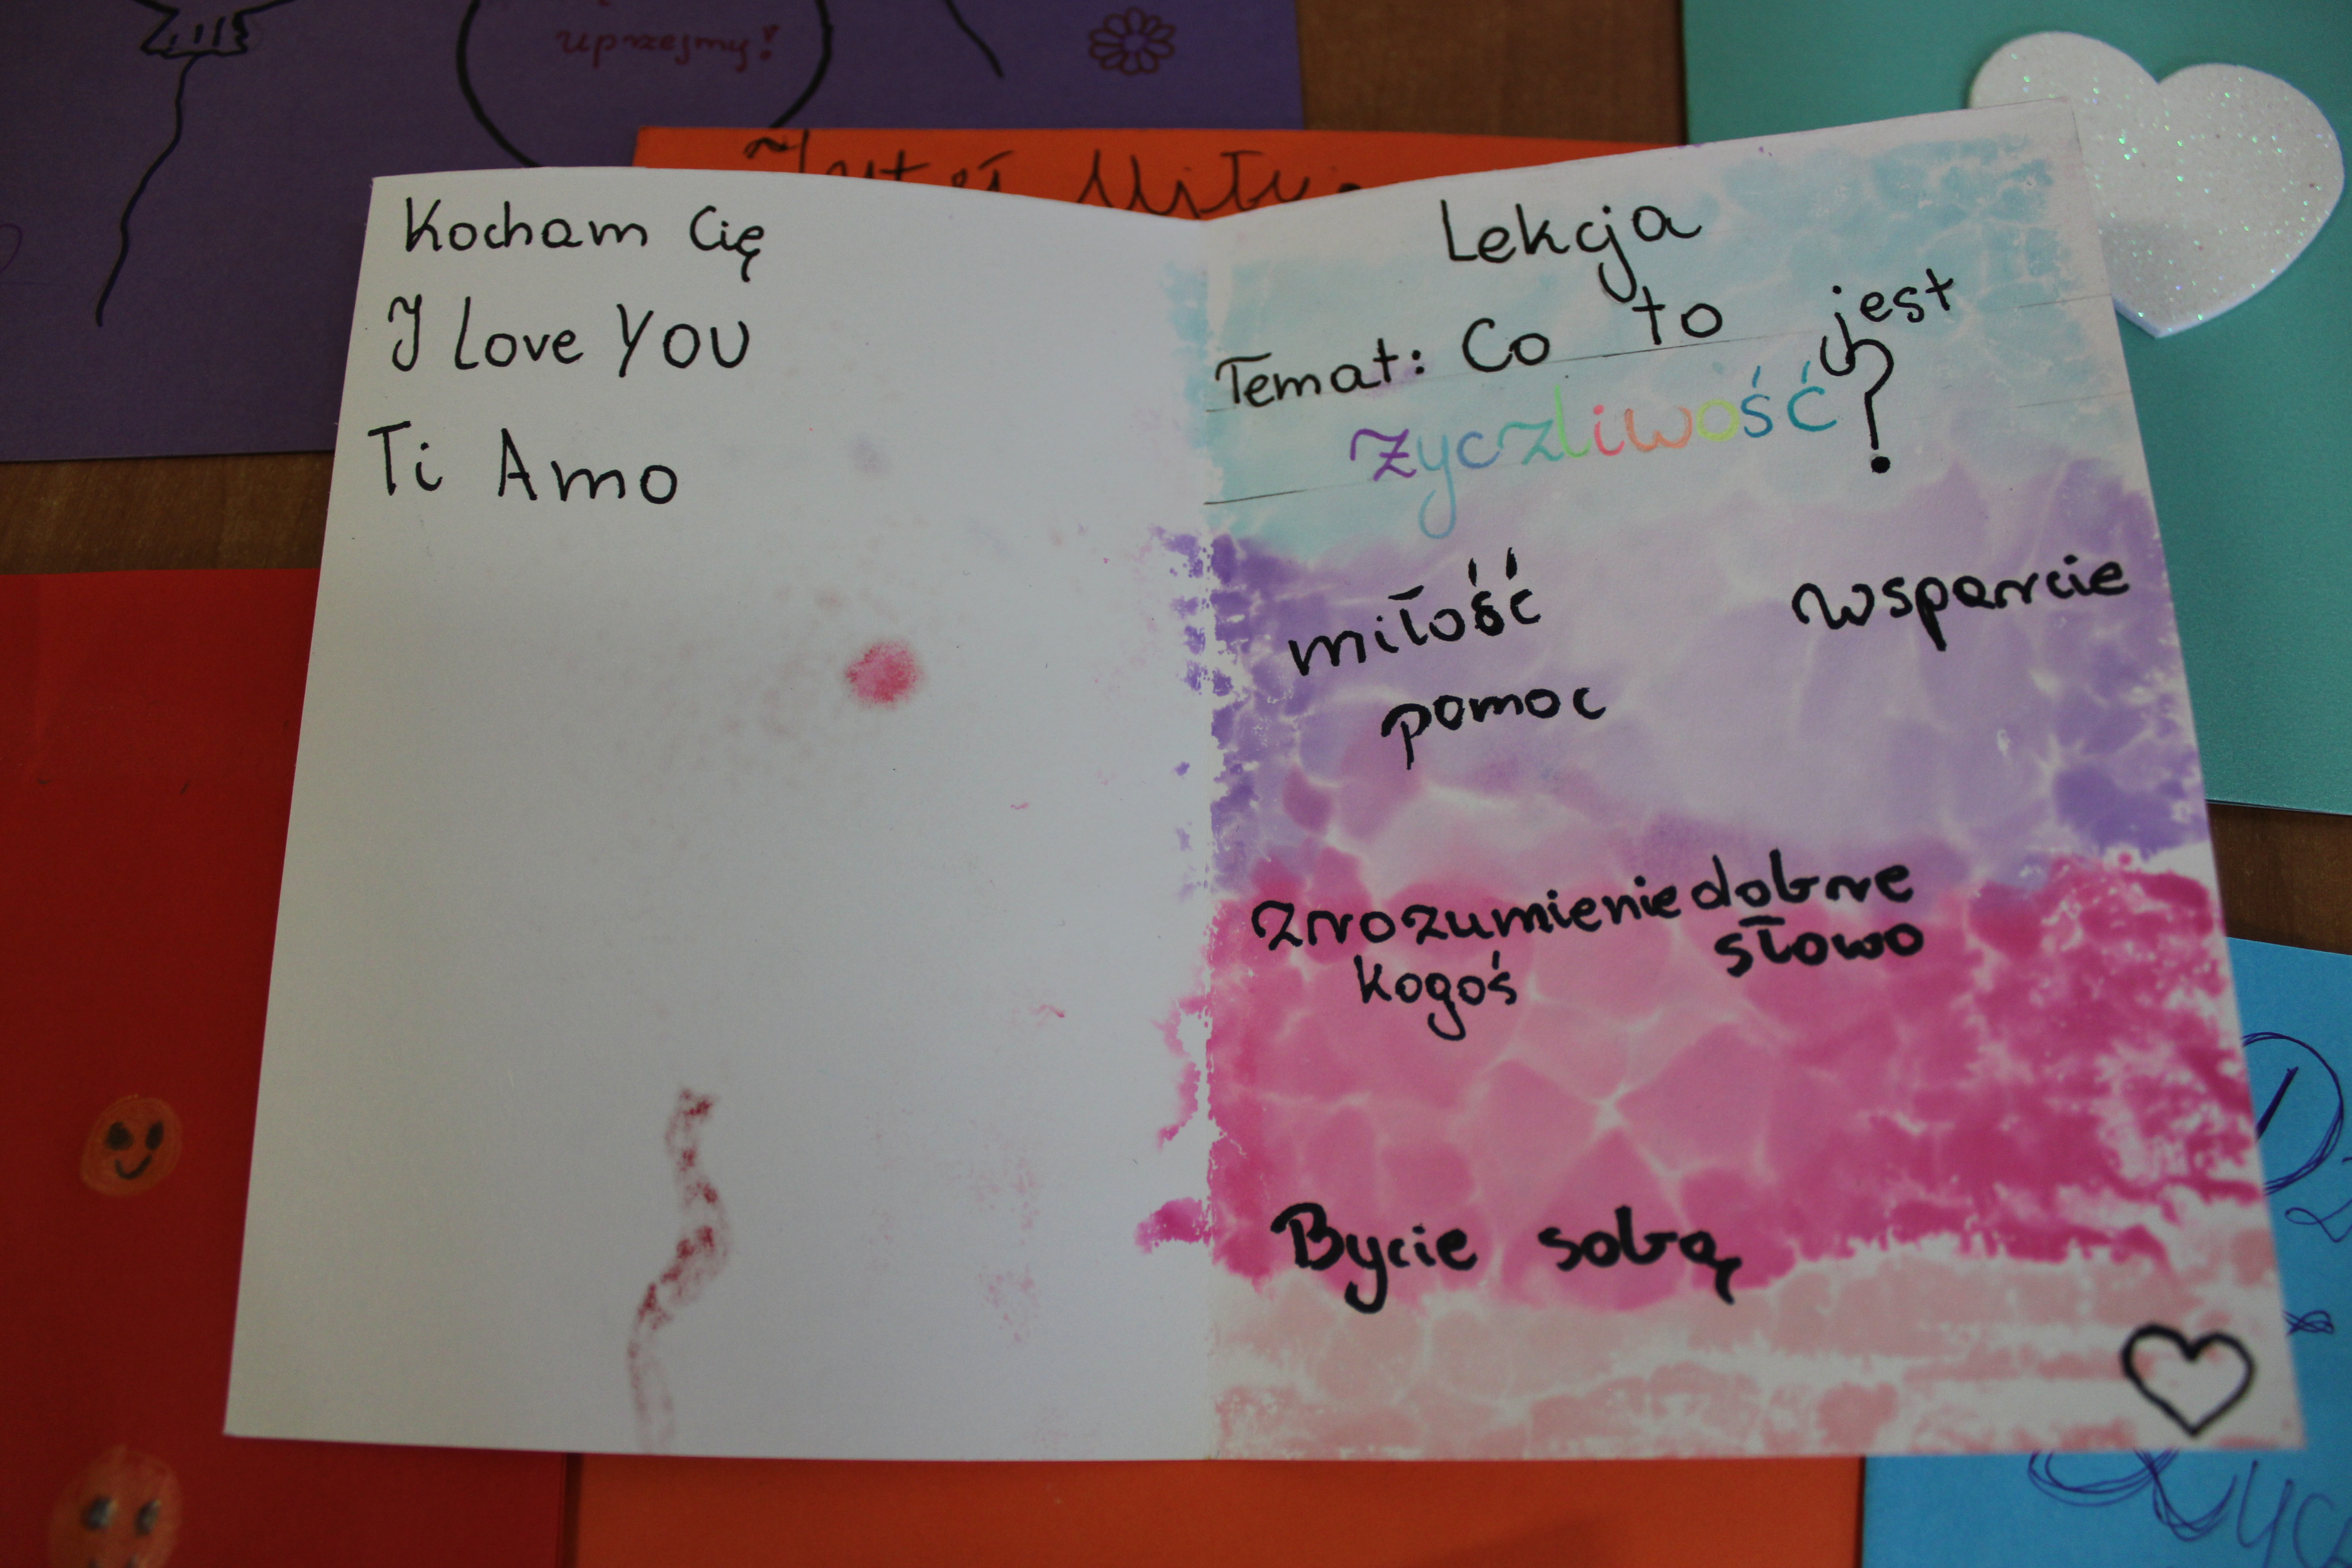 uprzejmy!
Kocham Cię
I Love YOU
Ti Amo
Lekcja
Temat: Co to jest
życzliwość?
miłość
wsparcie
pomoc
zrozumienie
kogoś
dobre
słowo
Bycie sobą